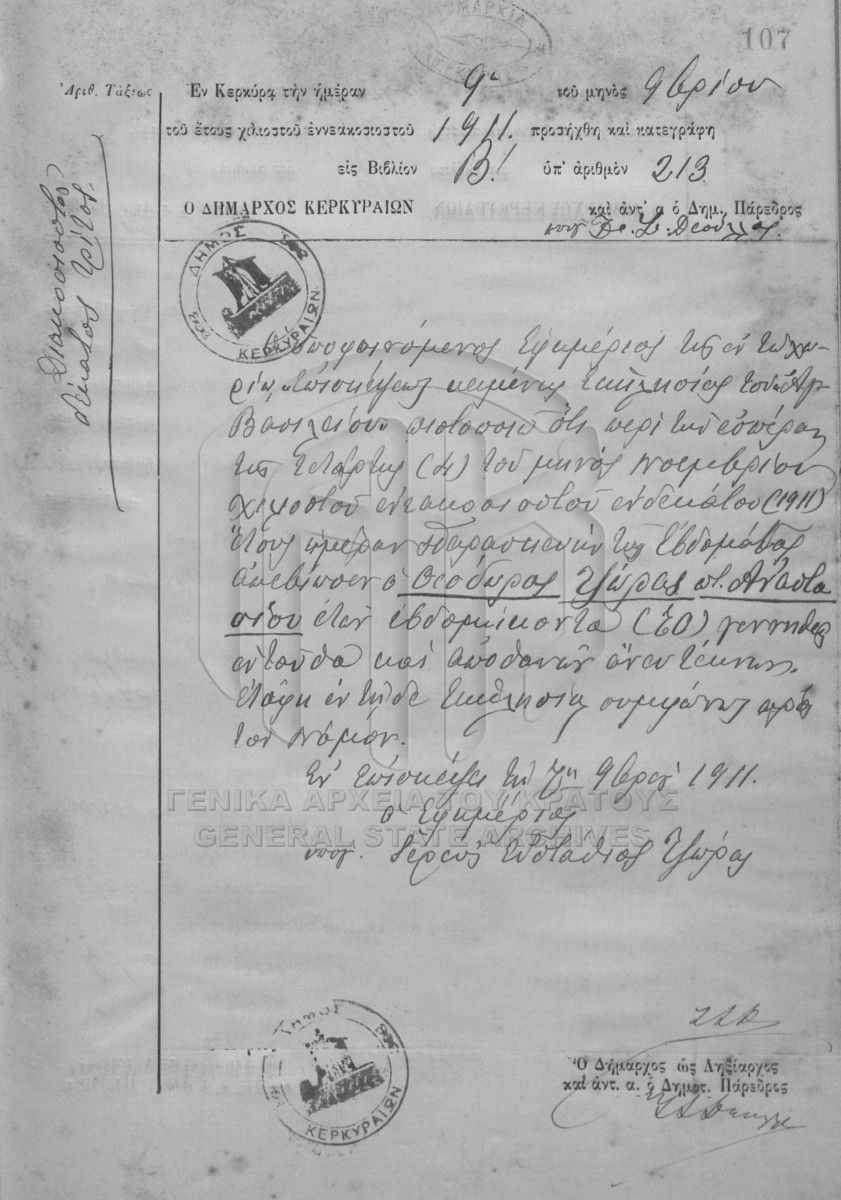 107
Ἀριθ. Τάξεως
Διακοσιοστὸς
δέκατος τρίτος
Ἐν Κερκύρᾳ τὴν ἡμέραν 9ῃ τοῦ μηνὸς 9βρίου
τοῦ ἔτους χιλιοστοῦ ἐννεακοσιοστοῦ 1911. προσήχθη καὶ κατεγράφη
εἰς Βιβλίον Β! ὑπ' ἀριθμὸν 213
Ὁ ΔΗΜΑΡΧΟΣ ΚΕΡΚΥΡΑΙΩΝ καὶ ἀντ' α ὁ Δημ. Πάρεδρος
υπογ
ΔΗΜΟΣ
ΚΕΡΚΥΡΑΙΩΝ
ὑποφαινόμενος Ἐφημέριος τῆς ἐν τῷ χω-
ρίῳ Ἐπισκέψεως κειμένης Ἐκκλησίας τοῦ Ἁγ
Βασιλείου πιστοποιῶ ὅτι περὶ τὴν ἑσπέραν
τῆς τετάρτης (4) τοῦ μηνὸς Νοεμβρίου
χιλιοστοῦ ἐννακοσιοστοῦ ἑνδεκάτου (1911)
ἔτους ἡμέραν Παρασκευὴν τῆς Ἑβδομάδος
ἀπεβίωσεν ὁ Θεόδωρος Τζώρας π. Ἀναστα
σίου ἐτῶν ἑβδομήκοντα (70) γεννηθεὶς
ἐνταῦθα καὶ ἀποθανὼν ἄνευ τέκνων.
ἐτάφη ἐν τῇδε Ἐκκλησίᾳ συμφώνως πρὸς
τὸν Νόμον.
Ἐν Ἐπισκέψει τῇ 7ῃ 9βρίου 1911.
ὁ Ἐφημέριος
υπογ. Ἱερεὺς Εὐστάθιος Τζώρας
ΓΕΝΙΚΑ ΑΡΧΕΙΑ ΤΟΥ ΚΡΑΤΟΥΣ
GENERAL STATE ARCHIVES
ΔΗΜΟΣ
ΚΕΡΚΥΡΑΙΩΝ
Ὁ Δήμαρχος ὡς Ληξίαρχος
καὶ ἀντ. α. ὁ Δημοτ. Πάρεδρος